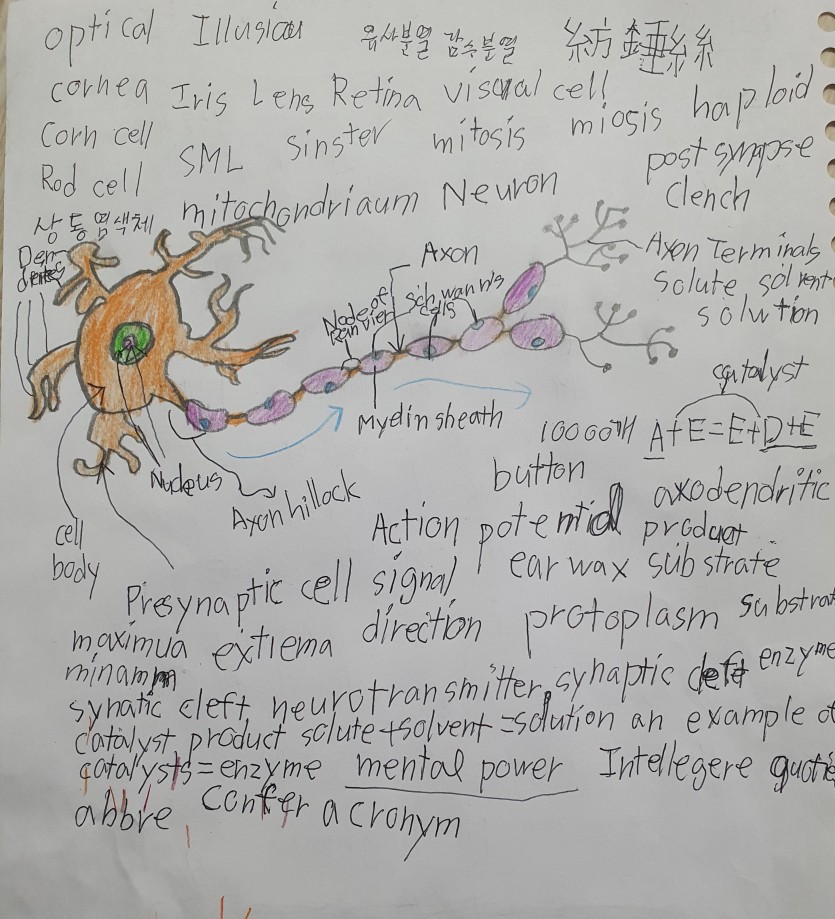 optical Illusion 유사분열 감수분열 紡錘絲
cornea Iris Lens Retina visual cell
Corn cell SML sinster mitosis miosis haploid
Rod cell mitochondriaum Neuron post synapse
상동염색체 clench
Den-
drites
Axon
Axon Terminals
Node of
Ranvier
Schwann's
cells
solute solvent
solution
catalyst
Myelin sheath
10000개 A+E=E+D+E
button
Nucleus
Axon hillock
axodendritic
cell
body
Action potential product
Presynaptic cell signal ear wax substrate
maximua extrema direction protoplasm substrat
minamm
synatic cleft neurotransmitter, synaptic cleft enzyme
catalyst product solute+solvent=solution an example of
catalysts=enzyme mental power Intellegere quotie
abbre confer acronym